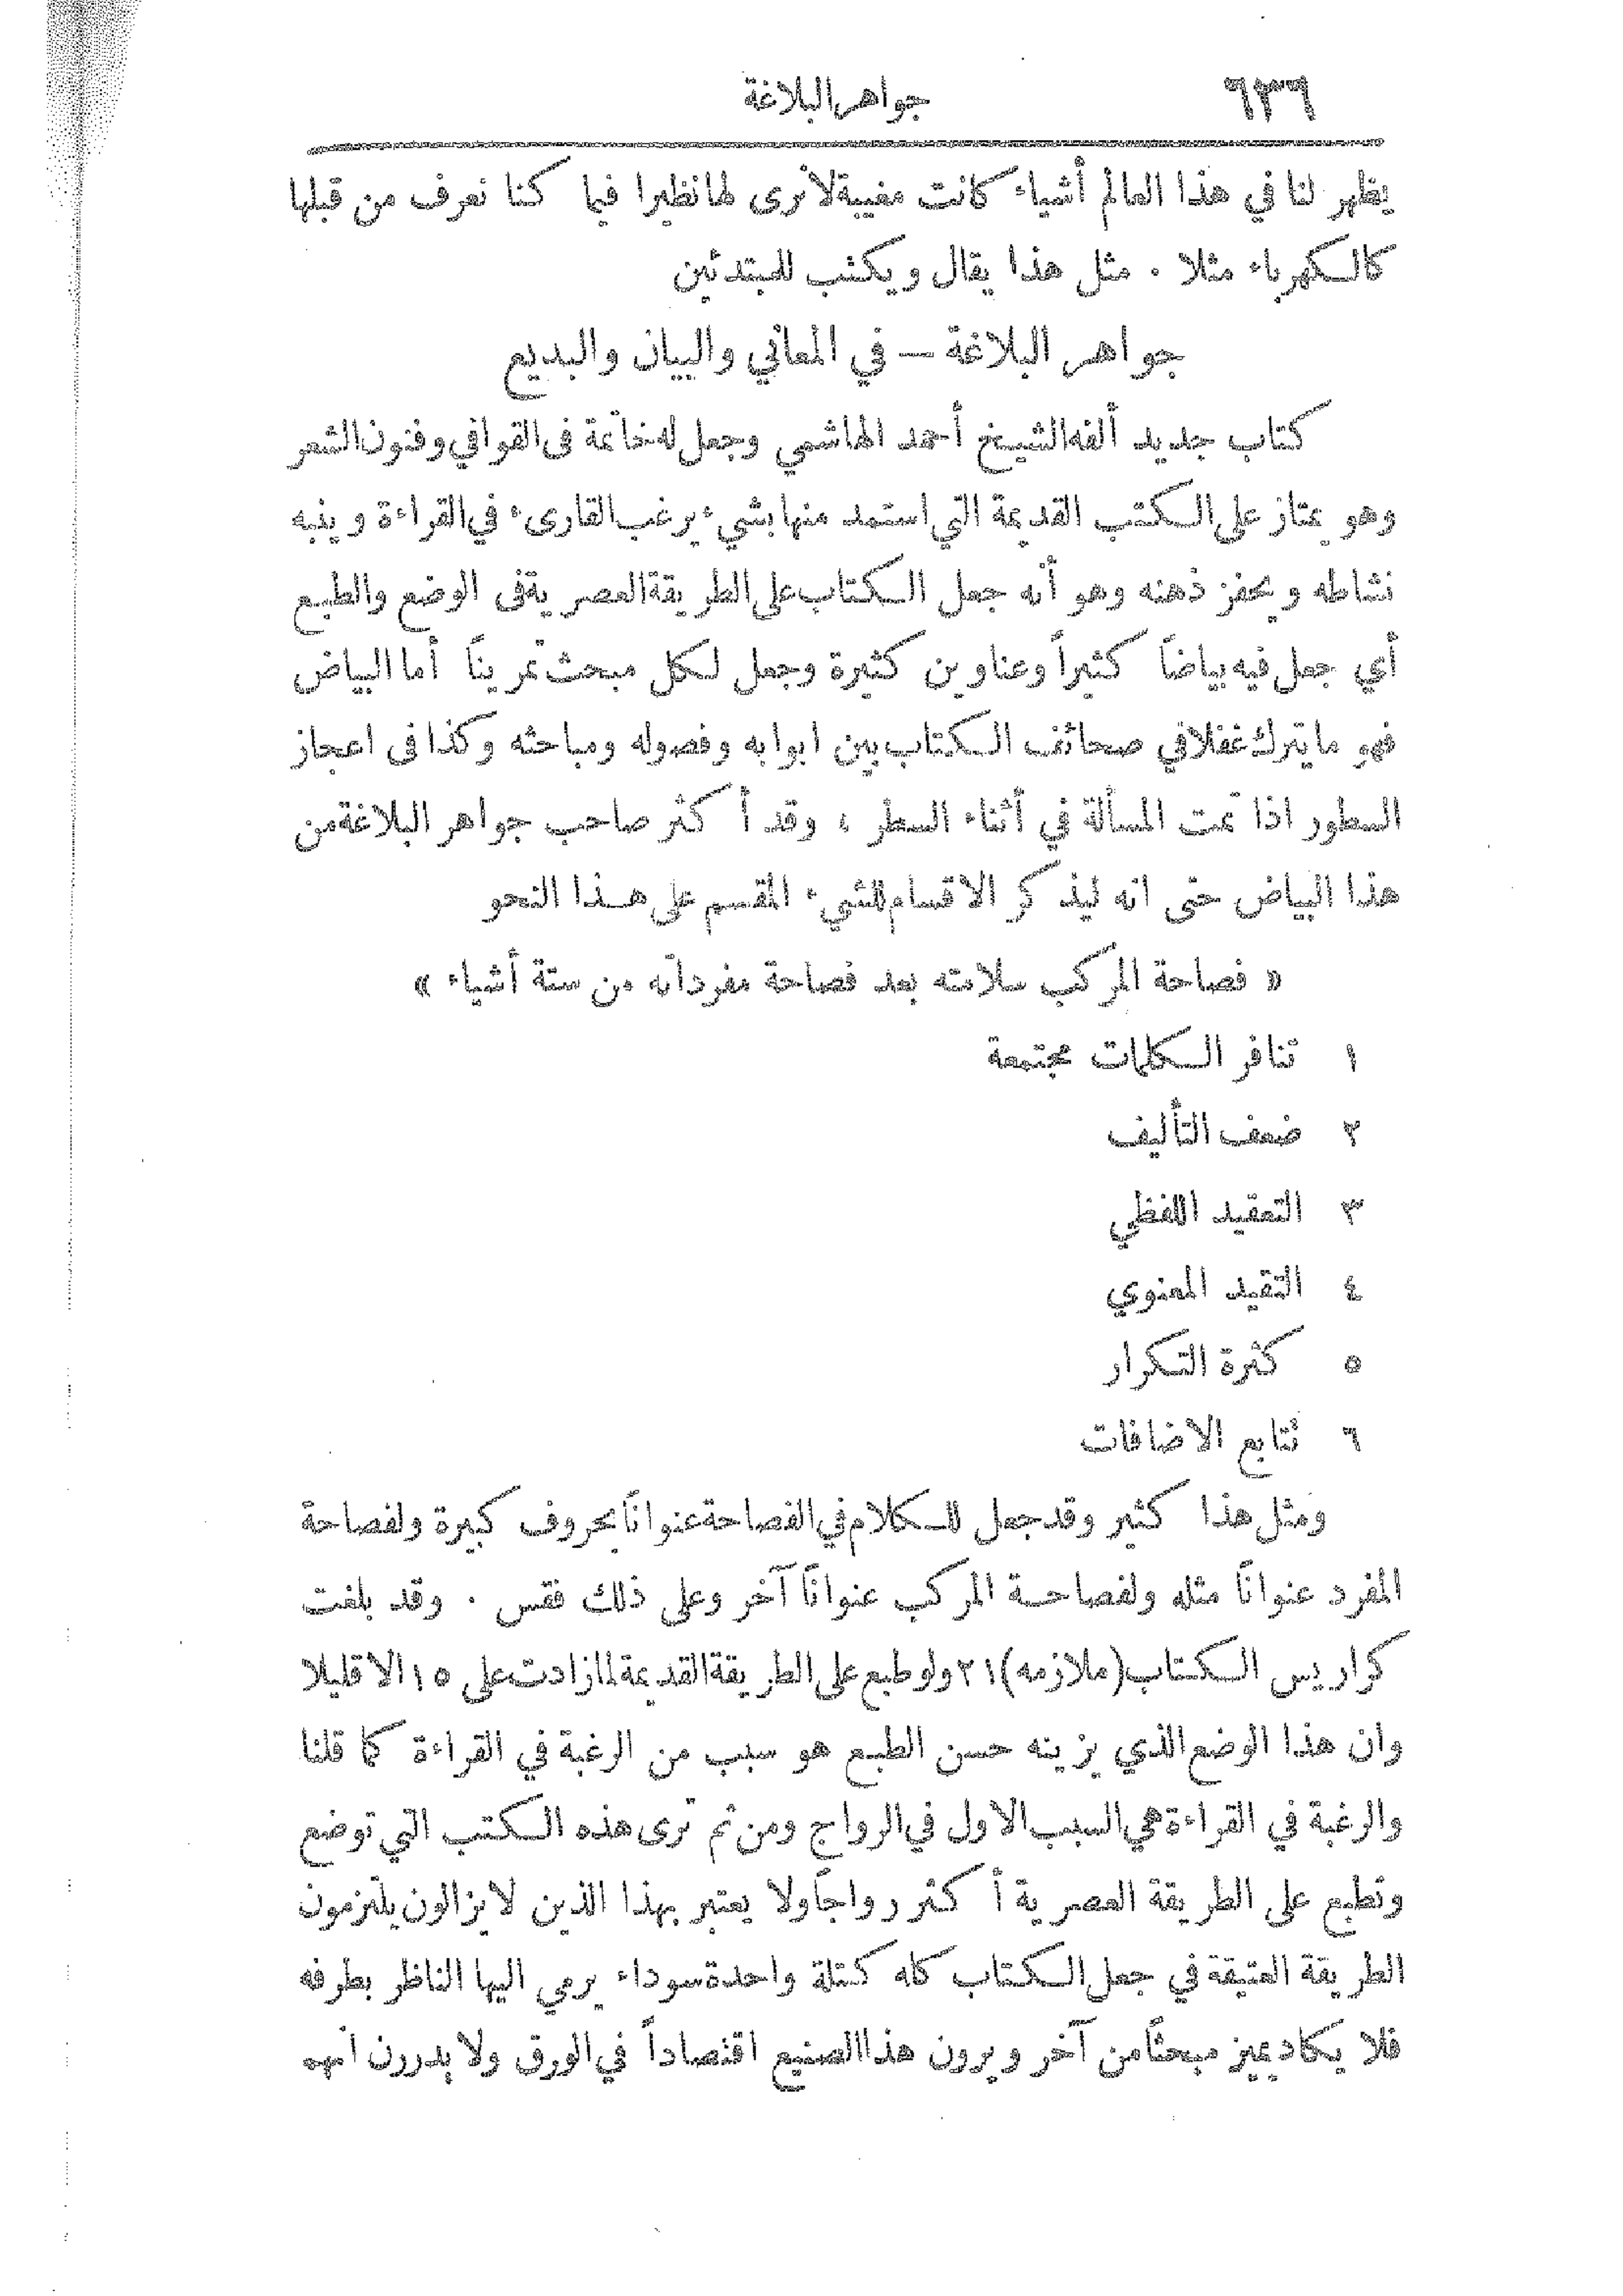 ٦٣٦ جواهر البلاغة
يظهر لنا في هذا العالم أشياء كانت مغيبة لا نرى لها نظيرا فيما كنا نعرف من قبلها
كالكهرباء مثلا . مثل هذا يقال ويكتب للمبتدئين
جواهر البلاغة — في المعاني والبيان والبديع
كتاب جديد ألفه الشيخ أحمد الهاشمي وجعل له خاتمة فى القوافي وفنون الشعر
وهو يمتاز على الكتب القديمة التي استمد منها بشيء يرغب القارىء في القراءة وينبه
نشاطه ويحفز ذهنه وهو أنه جعل الكتاب على الطريقة العصرية فى الوضع والطبع
أي جعل فيه بياضاً كثيراً وعناوين كثيرة وجعل لكل مبحث تمريناً أما البياض
فهو ما يترك غفلا في صحائف الكتاب بين ابوابه وفصوله ومباحثه وكذا فى اعجاز
السطور اذا تمت المسألة في أثناء السطر ، وقد أكثر صاحب جواهر البلاغة من
هذا البياض حتى انه ليذكر الاقسام للشيء المقسم على هذا النحو
« فصاحة المركب سلامته بعد فصاحة مفرداته من ستة أشياء »
١ تنافر الكلمات مجتمعة
٢ ضعف التأليف
٣ التعقيد اللفظي
٤ التقيد المعنوي
٥ كثرة التكرار
٦ تتابع الاضافات
ومثل هذا كثير وقد جعل للكلام في الفصاحة عنواناً بحروف كبيرة ولفصاحة
المفرد عنواناً مثله ولفصاحة المركب عنواناً آخر وعلى ذلك فقس . وقد بلغت
كراريس الكتاب (ملازمه) ٢١ ولو طبع على الطريقة القديمة لما زادت على ١٥ الا قليلا
وان هذا الوضع الذي يزينه حسن الطبع هو سبب من الرغبة في القراءة كما قلنا
والرغبة في القراءة هي السبب الاول في الرواج ومن ثم ترى هذه الكتب التي توضع
وتطبع على الطريقة العصرية أكثر رواجاً ولا يعتبر بهذا الذين لا يزالون يلتزمون
الطريقة العتيقة في جعل الكتاب كله كتلة واحدة سوداء يرمي اليها الناظر بطرفه
فلا يكاد يميز مبحثاً من آخر ويرون هذا الصنيع اقتصاداً في الورق ولا يدرون انهم